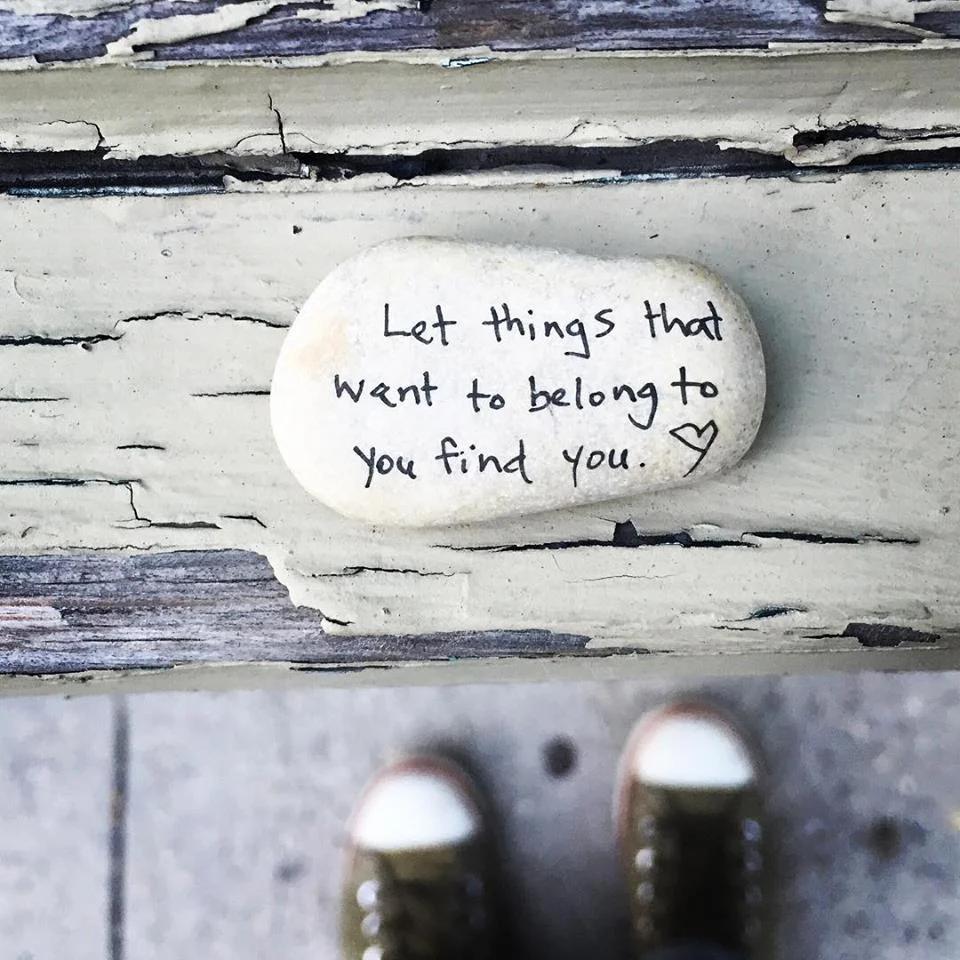 Let things that
want to belong to
you find you. ♡